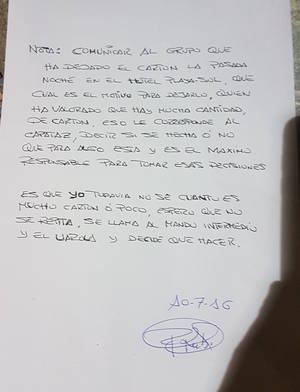 NOTA: COMUNICAR AL GRUPO QUE
HA DEJADO EL CARTON LA PASADA
NOCHE EN EL HOTEL PLAYA-SUL, QUE
CUAL ES EL MOTIVO PARA DEJARLO, QUIEN
HA VALORADO QUE HAY MUCHA CANTIDAD,
DE CARTON, ESO LE CORRESPONDE AL
CAPATAZ, DECIR SI SE HECHA Ó NO
QUE PARA ALGO ESTA Y ES EL MAXIMO
RESPONSABLE PARA TOMAR ESAS DECISIONES
ES QUE YO TODAVIA NO SE CUANTO ES
MUCHO CARTON Ó POCO, ESPERO QUE NO
SE REPITA, SE LLAMA AL MANDO INTERMEDIO
Y EL VALORA Y DECIDE QUE HACER.
10-7-16